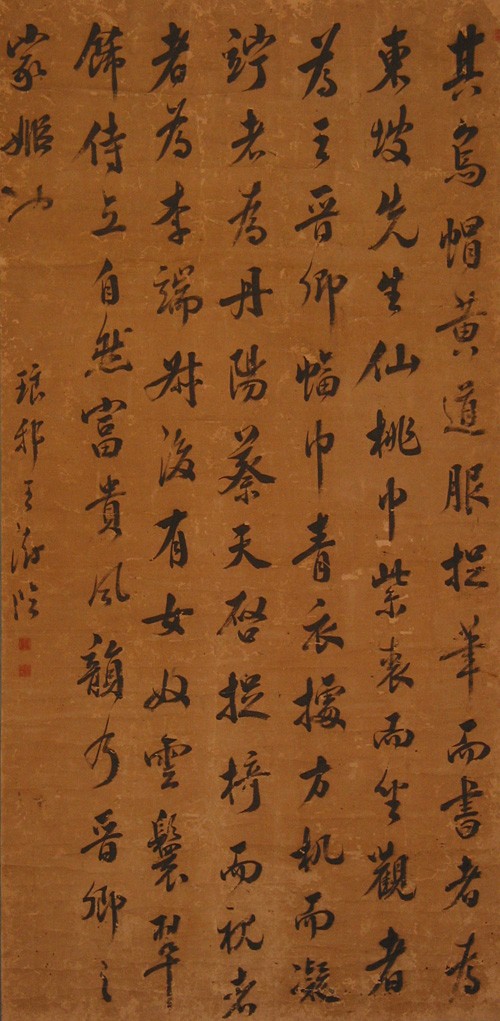 其烏帽黃道服捉筆而書者為
東坡先生仙桃巾紫裘而坐觀者
為王晉卿幅巾青衣據方机而凝
竚者為丹陽蔡天啓捉椅而視者
者為李端叔後有女奴雲鬟翠
飾侍立自然富貴風韻乃晉卿之
家姬也
琅邪王澍臨